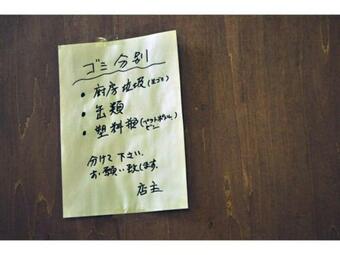 ゴミ分別
・厨房垃圾(生ゴミ)
・缶類
・塑料瓶(ペットボトル、ビン)
分けて下さい。
お願い致します。
店主